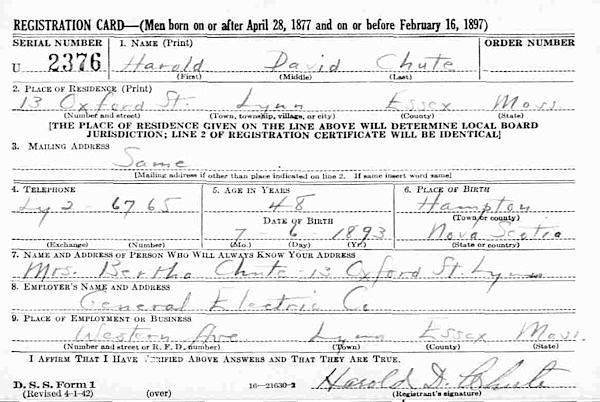 REGISTRATION CARD—(Men born on or after April 28, 1877 and on or before February 16, 1897)
SERIAL NUMBER 1. NAME (Print) ORDER NUMBER
U 2376 Harold David Chute
(First) (Middle) (Last)
2. PLACE OF RESIDENCE (Print)
13 Oxford St. Lynn Essex Mass
(Number and street) (Town, township, village, or city) (County) (State)
[THE PLACE OF RESIDENCE GIVEN ON THE LINE ABOVE WILL DETERMINE LOCAL BOARD
JURISDICTION; LINE 2 OF REGISTRATION CERTIFICATE WILL BE IDENTICAL]
3. MAILING ADDRESS
Same
[Mailing address if other than place indicated on line 2. If same insert word same]
4. TELEPHONE 5. AGE IN YEARS 6. PLACE OF BIRTH
Ly 2-6765 48 Hampton
DATE OF BIRTH (Town or county)
7 - 6 1893 Nova Scotia
(Exchange) (Number) (Mo.) (Day) (Yr.) (State or country)
7. NAME AND ADDRESS OF PERSON WHO WILL ALWAYS KNOW YOUR ADDRESS
Mrs. Bertha Chute - 13 Oxford St. Lynn
8. EMPLOYER'S NAME AND ADDRESS
General Electric Co
9. PLACE OF EMPLOYMENT OR BUSINESS
Western Ave Lynn Essex Mass.
(Number and street or R. F. D. number) (Town) (County) (State)
I AFFIRM THAT I HAVE VERIFIED ABOVE ANSWERS AND THAT THEY ARE TRUE.
D. S. S. Form 1
(Revised 4-1-42) (over) 16—21630-2 Harold D. Chute
(Registrant's signature)